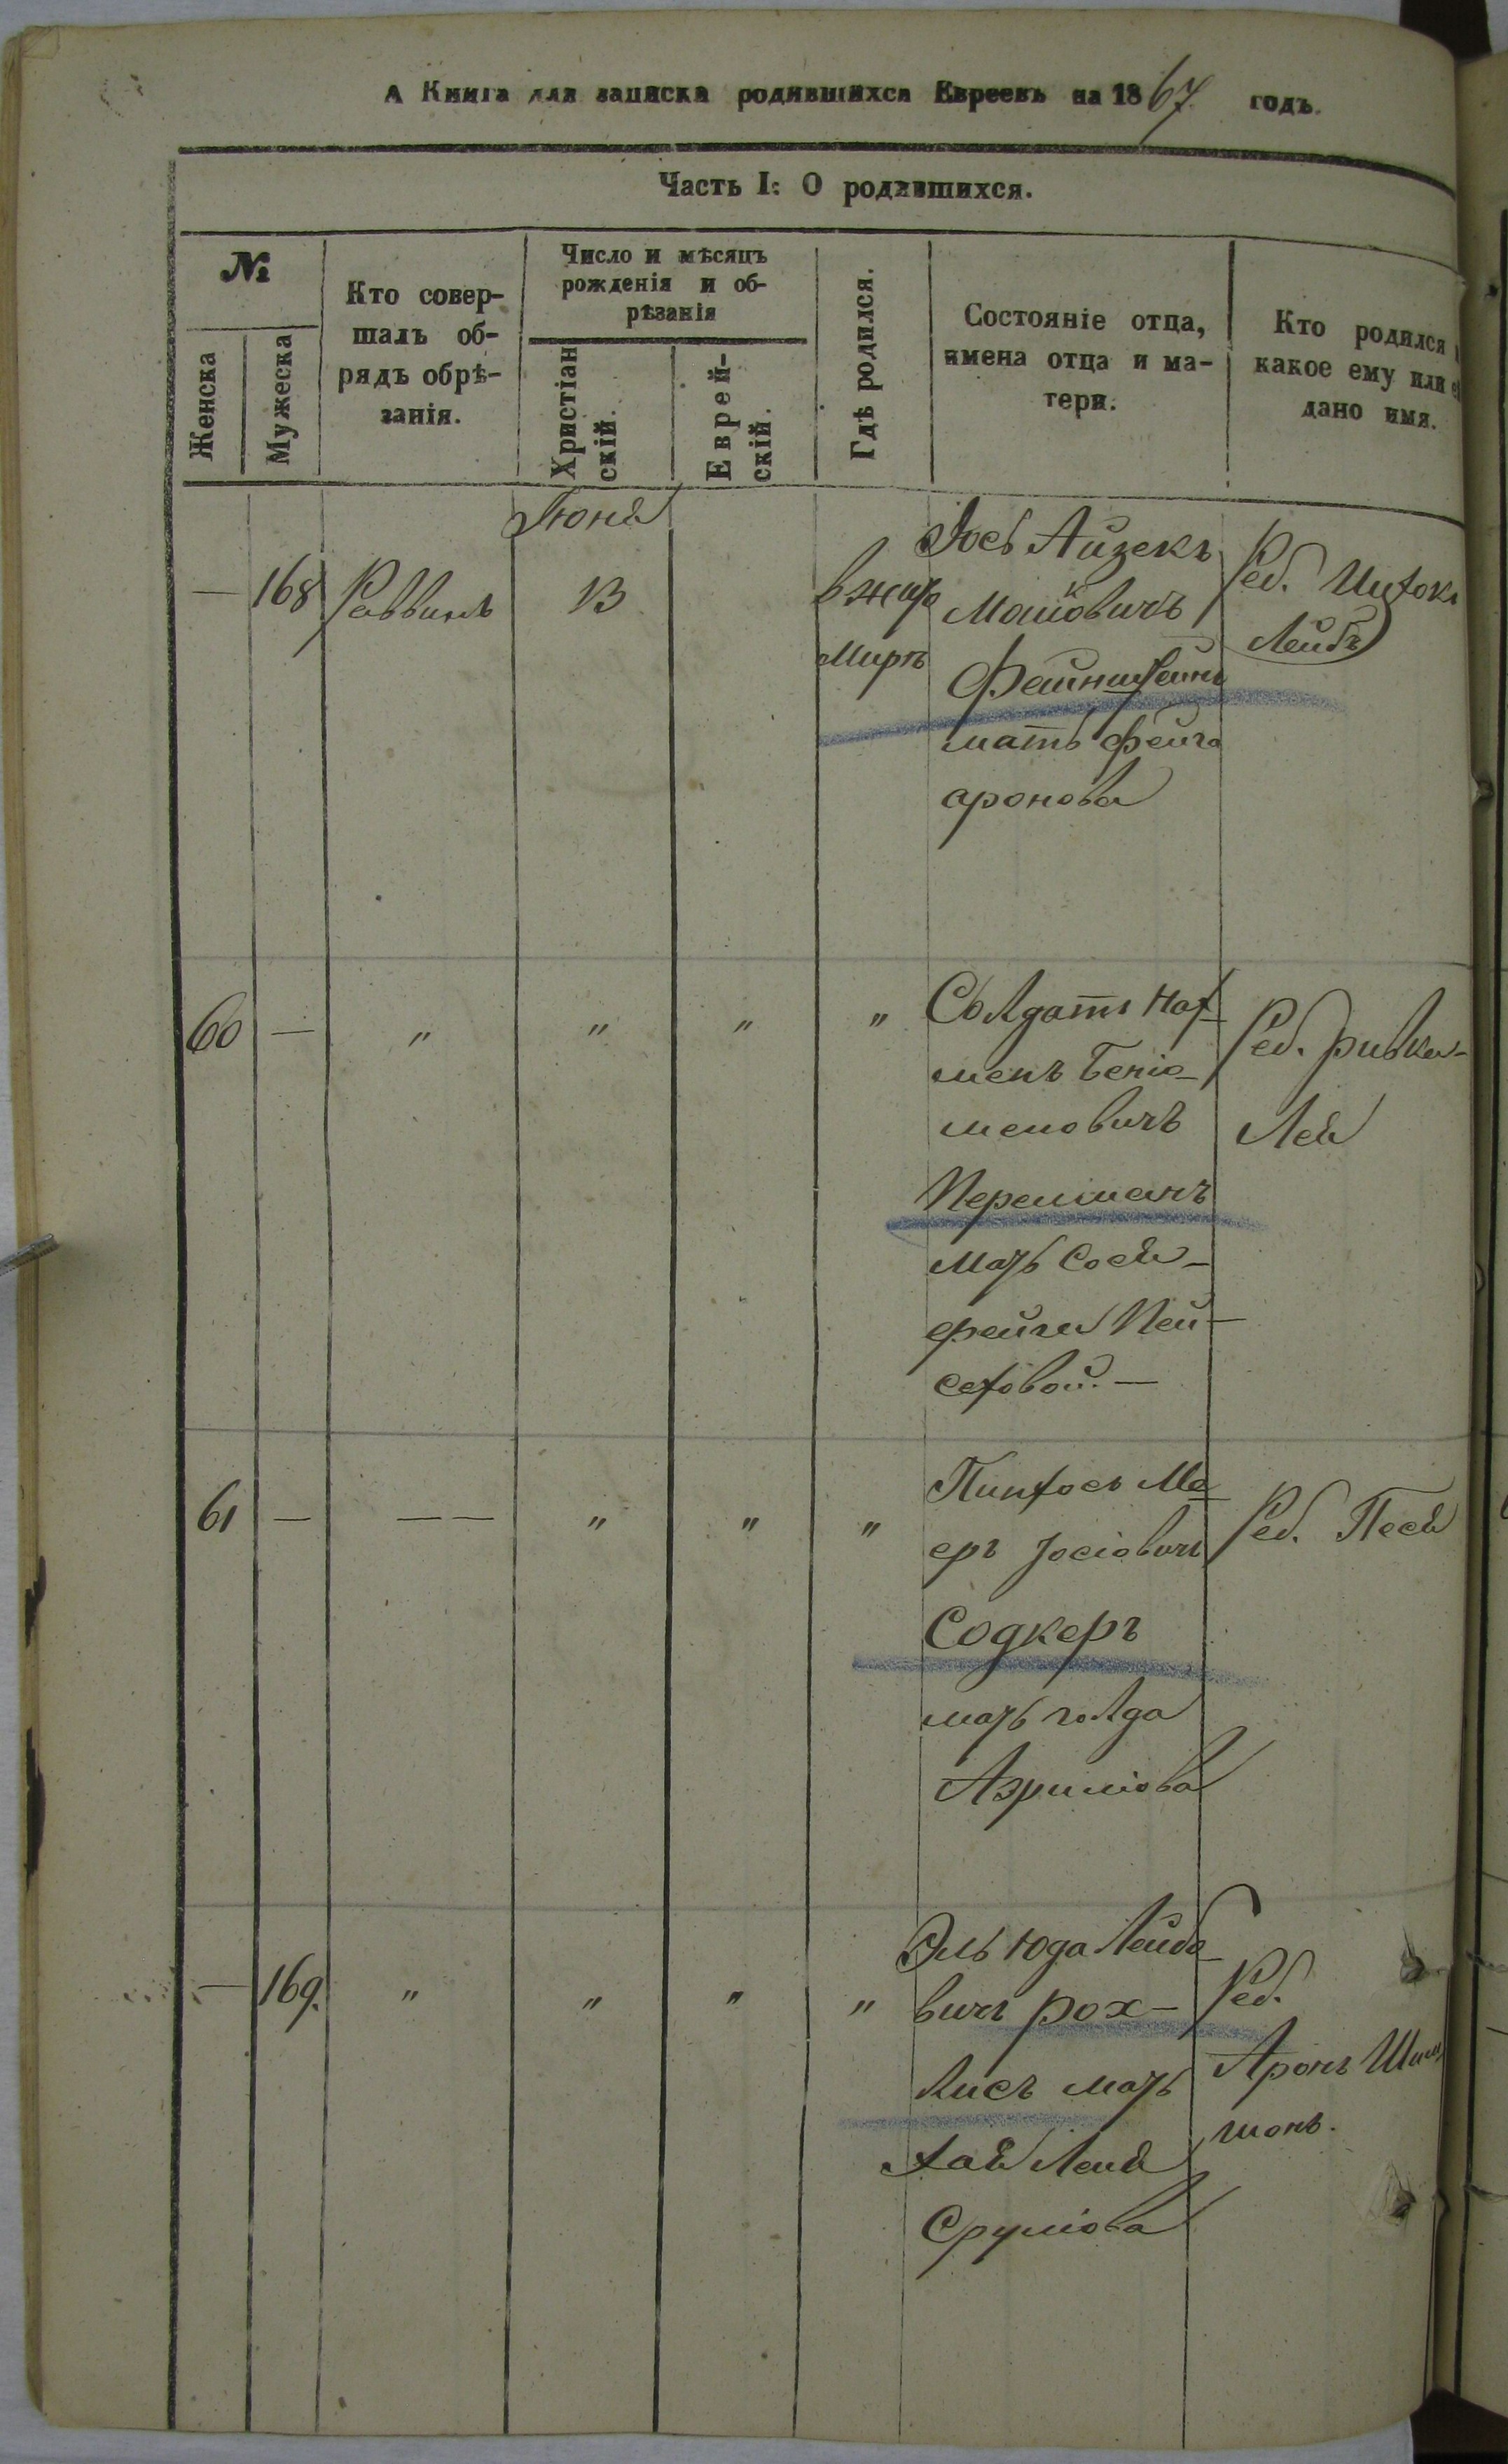 А Книга для записки родившихся Евреевъ на 1867 годъ.
Часть I: О родившихся.
№
Женска
Мужеска
Кто совер-
шалъ об-
рядъ обрѣ-
занія.
Число и мѣсяцъ
рожденія и об-
рѣзанія
Христіан
скій.
Еврей-
скій.
Гдѣ родился.
Состояніе отца,
имена отца и ма-
тери.
Кто родился
какое ему или
дано имя.
Іюня
— 168 Раввинъ 13
в жито
мирѣ
Іось Айзекъ
Мошковичъ
Файнштейнъ
мать Фейга
аронова
Реб. Ицхокъ
Лейбъ
60 — " " " "
Солдатъ Нах-
менъ Беніо-
меновичъ
Перельманъ
мать Сося-
фейга Пей-
сеховой. —
Реб. ривка-
Лея
61 — — — " " "
Пинхосъ Ме-
еръ Іосіовичъ
Содкеръ
мать голда
Азриліова
Реб. Песя
— 169. " " " "
Эль Юда Лейбо-
вичъ рох-
лисъ мать
Хая Лея
Сруліова
Реб.
Аронъ Шим
шонъ.